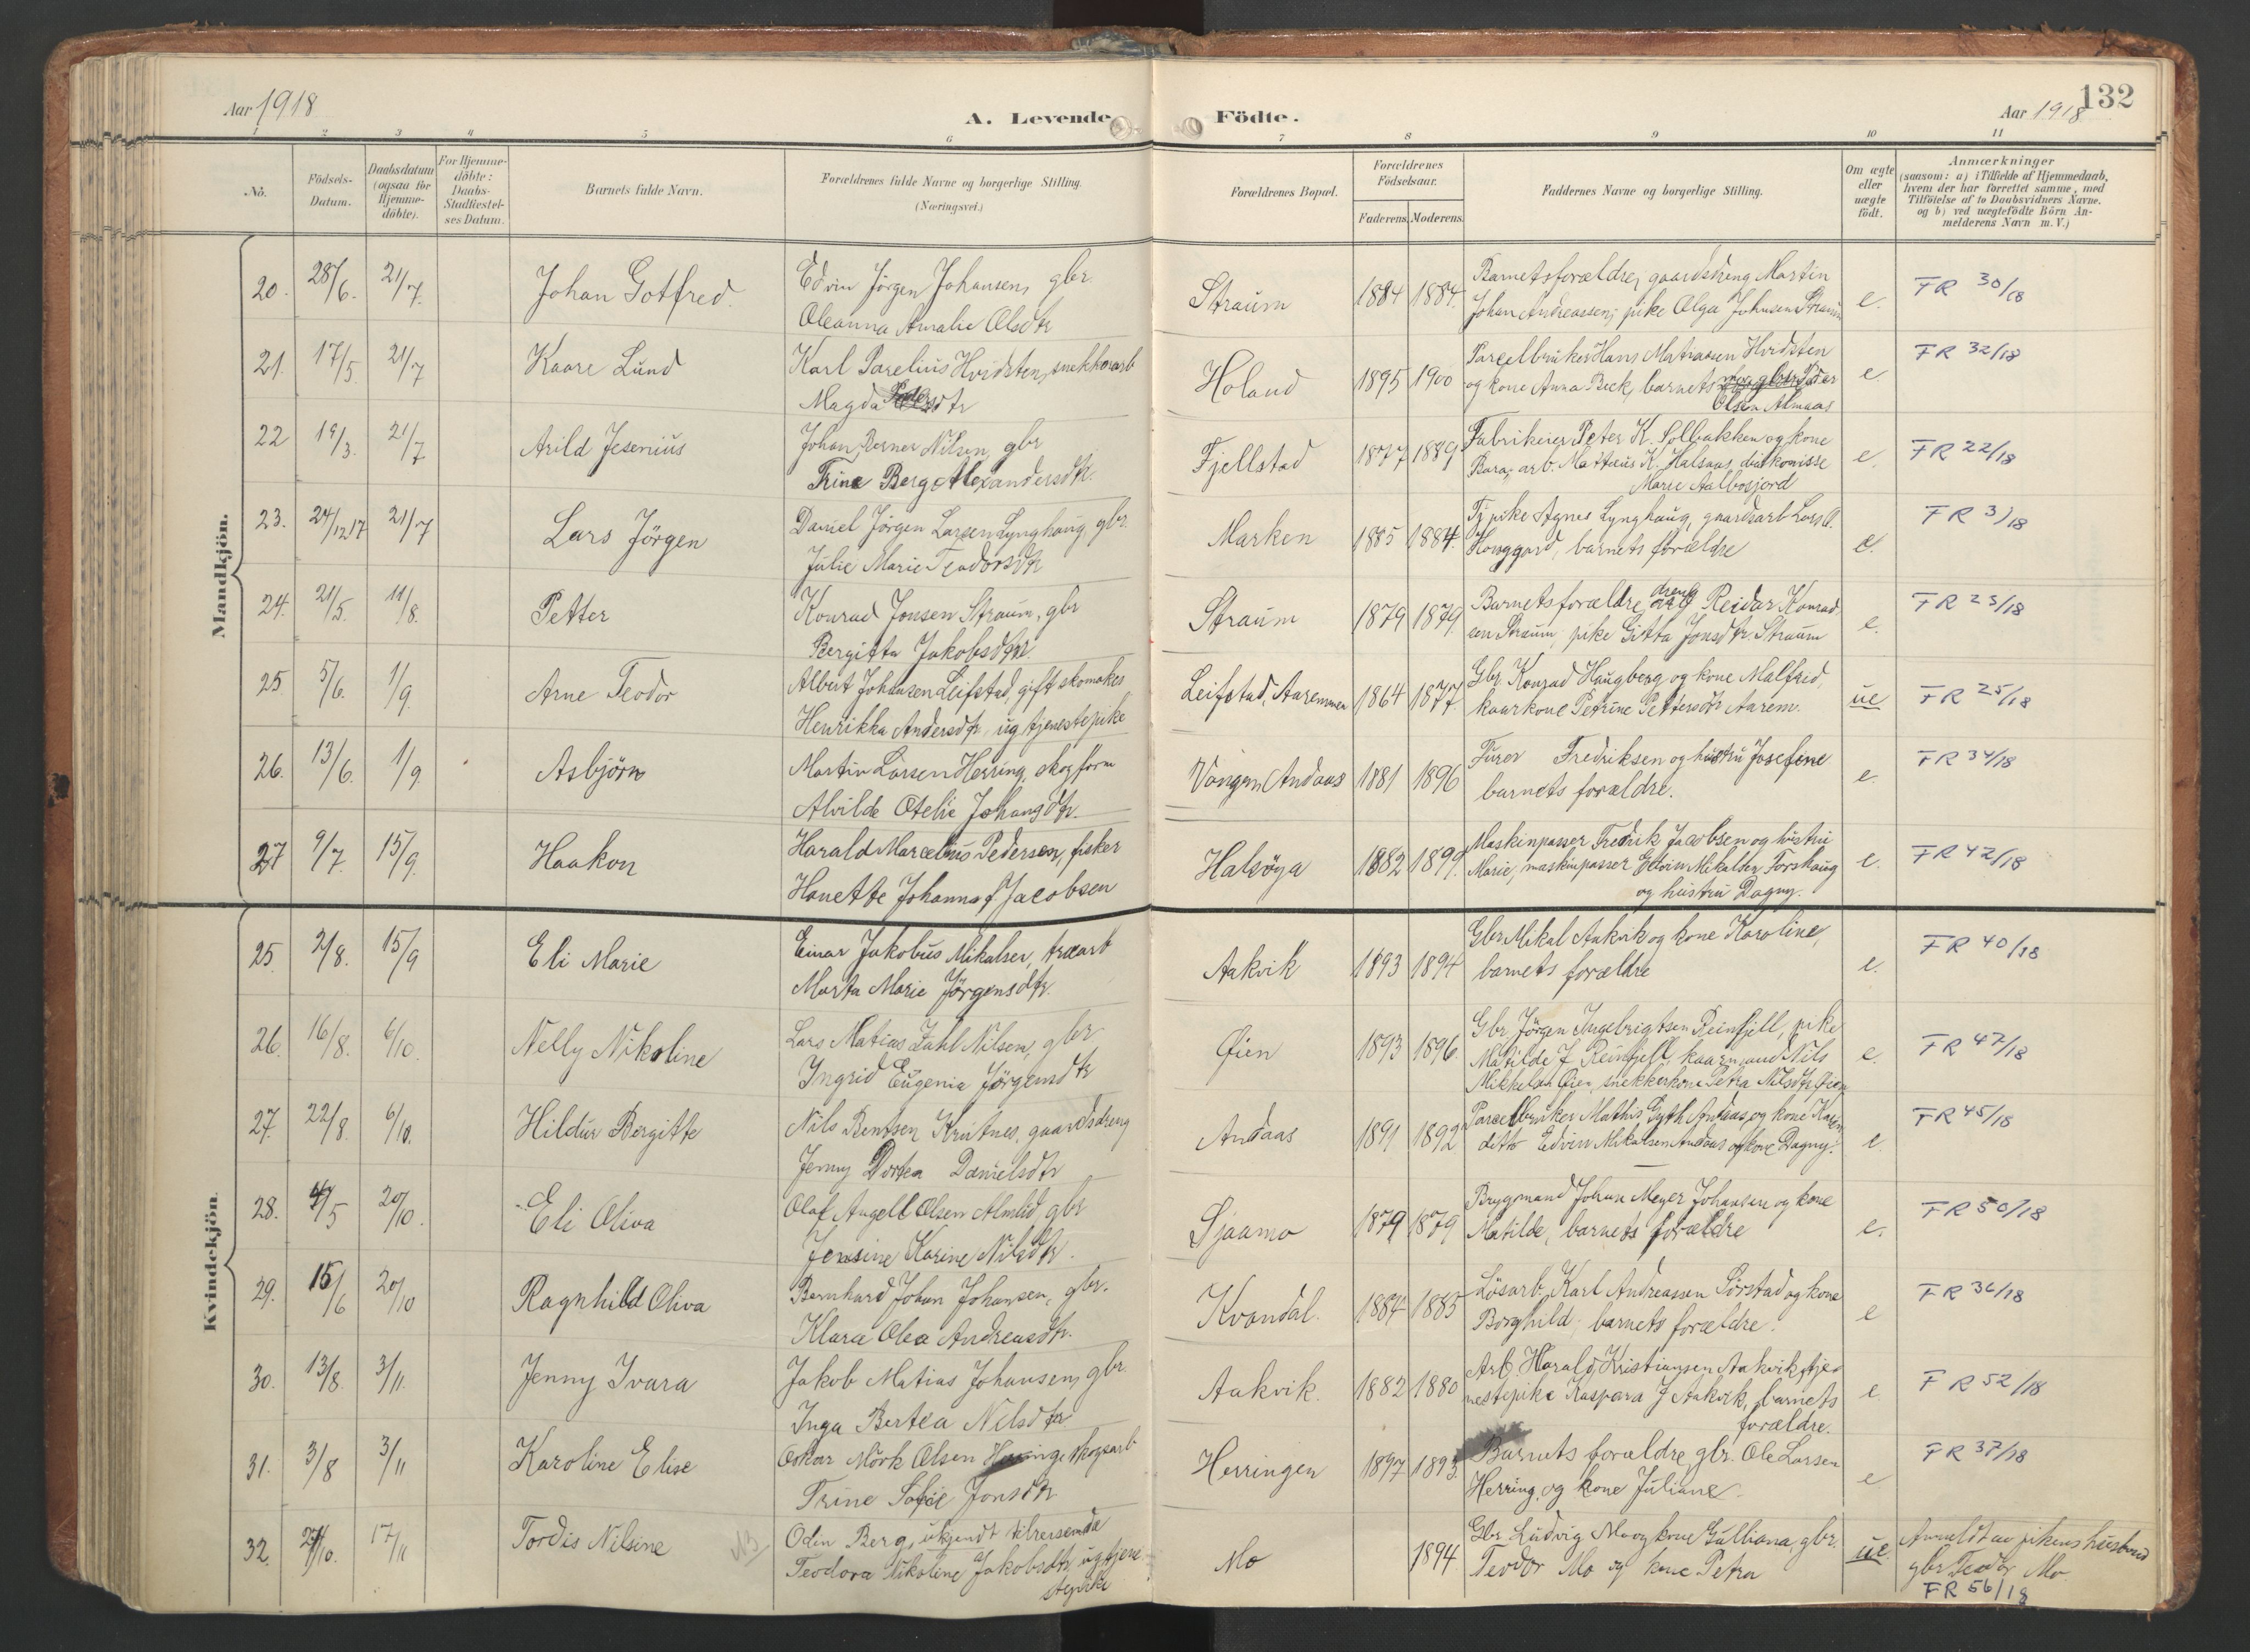 Aar 1918
A. Levende Födte.
132
Aar 1918
1 2 3 4 5 6 7 8 9 10 11
No.
Födsels-Datum.
Daabsdatum (ogsaa for Hjemmedöbte).
For Hjemmedöbte: Daabs-Stadfæstelses Datum.
Barnets fulde Navn.
Forældrenes fulde Navne og borgerlige Stilling. (Næringsvei.)
Forældrenes Bopæl.
Forældrenes Födselsaar.
Faderens. Moderens.
Faddernes Navne og borgerlige Stilling.
Om ægte eller uægte födt.
Anmærkninger
(saasom: a) i Tilfælde af Hjemmedaab,
hvem der har forrettet samme, med
Tilföielse af to Daabsvidners Navne.
og b) ved uægtefödte Börn An-
melderens Navn m. V.)
Mandkjön.
20. 28/6. 21/7. Johan Gotfred. Edvin Jörgen Johansen, gbr Straum 1884 1884. Barnets forældre, gaardsdreng Martin e. FR 30/18
Oleanna Amalie Olsdtr Johan Andreassen, pike Olga Johnsen Straum
21. 17/5. 21/7 Kaare Lund Karl Parelius Hvidsten, Holand 1895 1900 Parcelbruker Hans Matiasen Hvidsten e FR 32/18
Magda Pedersdtr og kone Anna Beck, barnets
Olsen Almaas
22 19/3. 21/7 Arild Jesenius Johan Berner Nilsen, gbr Fjellstad 1877 1889 Fabrikeier Peter K. Solbakken og kone e. FR 22/18
Trine Berg Alexandersdtr. Bara, arb. Mattæus K. Halsaas, diakonisse
Marie Aalbosjord
23. 24/12 17 21/7 Lars Jörgen Daniel Jörgen Larsen Lynghaug, gbr. Marken 1885 1884. Tj pike Agnes Lynghaug, gaardsarb Lars O. e. FR 3/18
Julie Marie Teodorsdtr barnets forældre
24. 21/5. 11/8. Petter Konrad Jonsen Straum, gbr Straum 1879 1879. Barnets forældre, dreng Reidar Konrad- e. FR 23/18
Bergitta Jakobsdtr. sen Straum, pike Gitta Jonsdtr. Straum
25. 5/6. 1/9. Arne Teodor Albert Johansen Leifstad, gift skomaker Leifstad, Aaremmen 1864 1877. Gbr. Konrad Haugberg og kone Malfred, ue FR 25/18
Henrikka Andersdtr, ug tjenestepike kaarkone Petrine Pettersdtr Aarem.
26. 13/6. 1/9 Asbjörn Martin Larsen Herring, skogform Vangen, Andaas 1881 1896 Furer Fredriksen og hustru Josefine e. FR 34/18
Alvilde Otelie Johansdtr. barnets forældre.
27 9/7. 15/9. Haakon Harald Marcelius Pedersen, fisker Halsöya 1882 1899. Maskinpasser Fredrik Jacobsen og hustru e. FR 42/18
Hanette Johanna f. Jacobsen Marie, maskinpasser Edvin Mikalsen Forshaug
og hustru Dagny.
Kvindekjön
25. 2/8. 15/9 Eli Marie Einar Jakobus Mikalsen, træarb Aakvik 1893 1894 Gbr. Mikal Aakvik og kone Karoline, e. FR 40/18
Marta Marie Jörgensdtr. barnets forældre
26. 16/8. 6/10. Nelly Nikoline Lars Matias Zahl Nilsen, gbr Øien 1893 1896. Gbr. Jörgen Ingebrigtsen Reinfjell, pike e. FR 47/18
Ingrid Eugenia Jörgensdtr Matilde J. Reinfjell, kaarmand Nils
Mikkelsen Øien, snekkerkone Petra Nilsdtr Øien
27. 22/8. 6/10. Hildur Bergitte Nils Bentsen Kritnes, gaardsdreng Andaas 1891 1892 Parcelbruker Mathis Andaas og kone e FR 45/18
Jenny Dortea Danielsdtr ditto Edvin Mikalsen Andaas og kone Dagny.
28. 4/5 20/10. Eli Oliva Olaf Angell Olsen Almlid gbr Sjaamo 1879 1879 Brygmand Johan Meyer Johansen og kone e. FR 50/18
Jensine Karine Nilsdtr. Matilde, barnets forældre
29. 15/6 20/10 Ragnhild Oliva Bernhard Johan Johansen, gbr. Kvandal. 1884 1885 Lösarb. Karl Andreassen Sörstad og kone e FR 36/18
Klara Olea Andreasdtr. Borghild, barnets forældre.
30. 13/8. 3/11. Jenny Ivara Jakob Matias Johansen, gbr. Aakvik. 1882 1880 Arb. Harald Kristiansen Aakvik, tje- e. FR 52/18
Inga Bertea Nilsdtr nestepike Kaspara J Aakvik, barnets
forældre.
31. 3/8 3/11 Karoline Elise Oskar Mörk Olsen Herringe skogsarb Herringen 1897 1893 Barnets forældre, gbr. Ole Larsen e FR 37/18
Trine Sofie Jonsdtr Herring, og kone Juliane.
32. /10. 17/11 Tordis Nilsine NB Oden Berg, ukjendt tilreisende Mo 1894 Gbr. Ludvig Mo og kone Gulliana, gbr. ue. Anmeldt av pikens husbond
Teodora Nikoline Jakobsdtr, ug tjene- Teodor Mo og kone Petra gbr Teodor Mo.
stepike FR 56/18